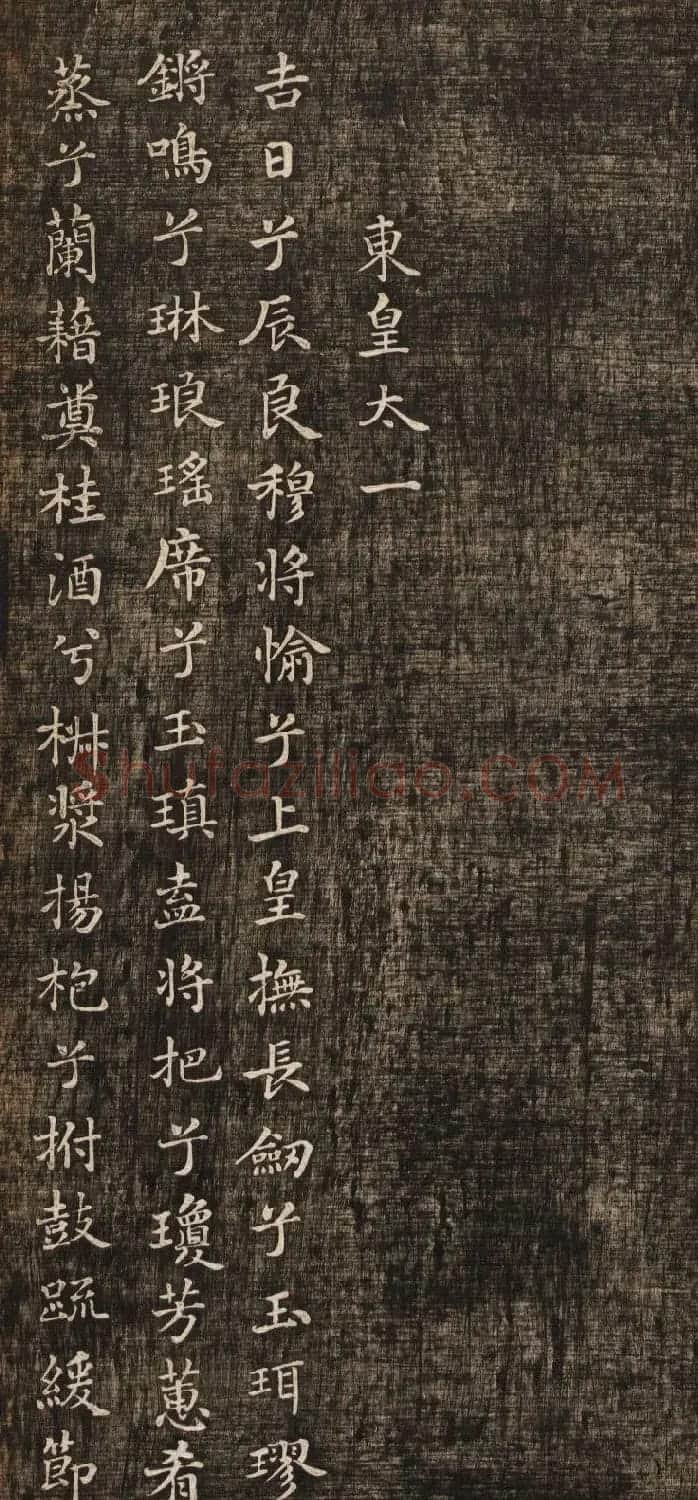 東皇太一
吉日兮辰良穆將愉兮上皇撫長劒兮玉珥璆
鏘鳴兮琳琅瑤席兮玉瑱盍將把兮瓊芳蕙肴
蒸兮蘭藉奠桂酒兮椒漿揚枹兮拊鼓疏緩節
Shufaziliao.COM